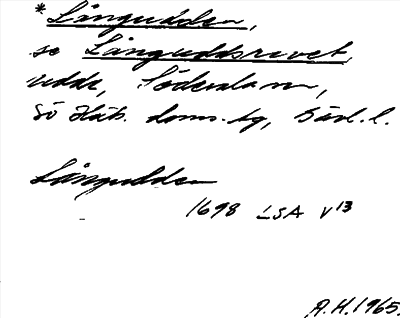 *Långudden,
se Långuddsrevet,
udde, Söderala sn,
Sö Häls. doms.-bg, Gävl. l.
Långudden
1698 LSA V 13
A.H. 1965.